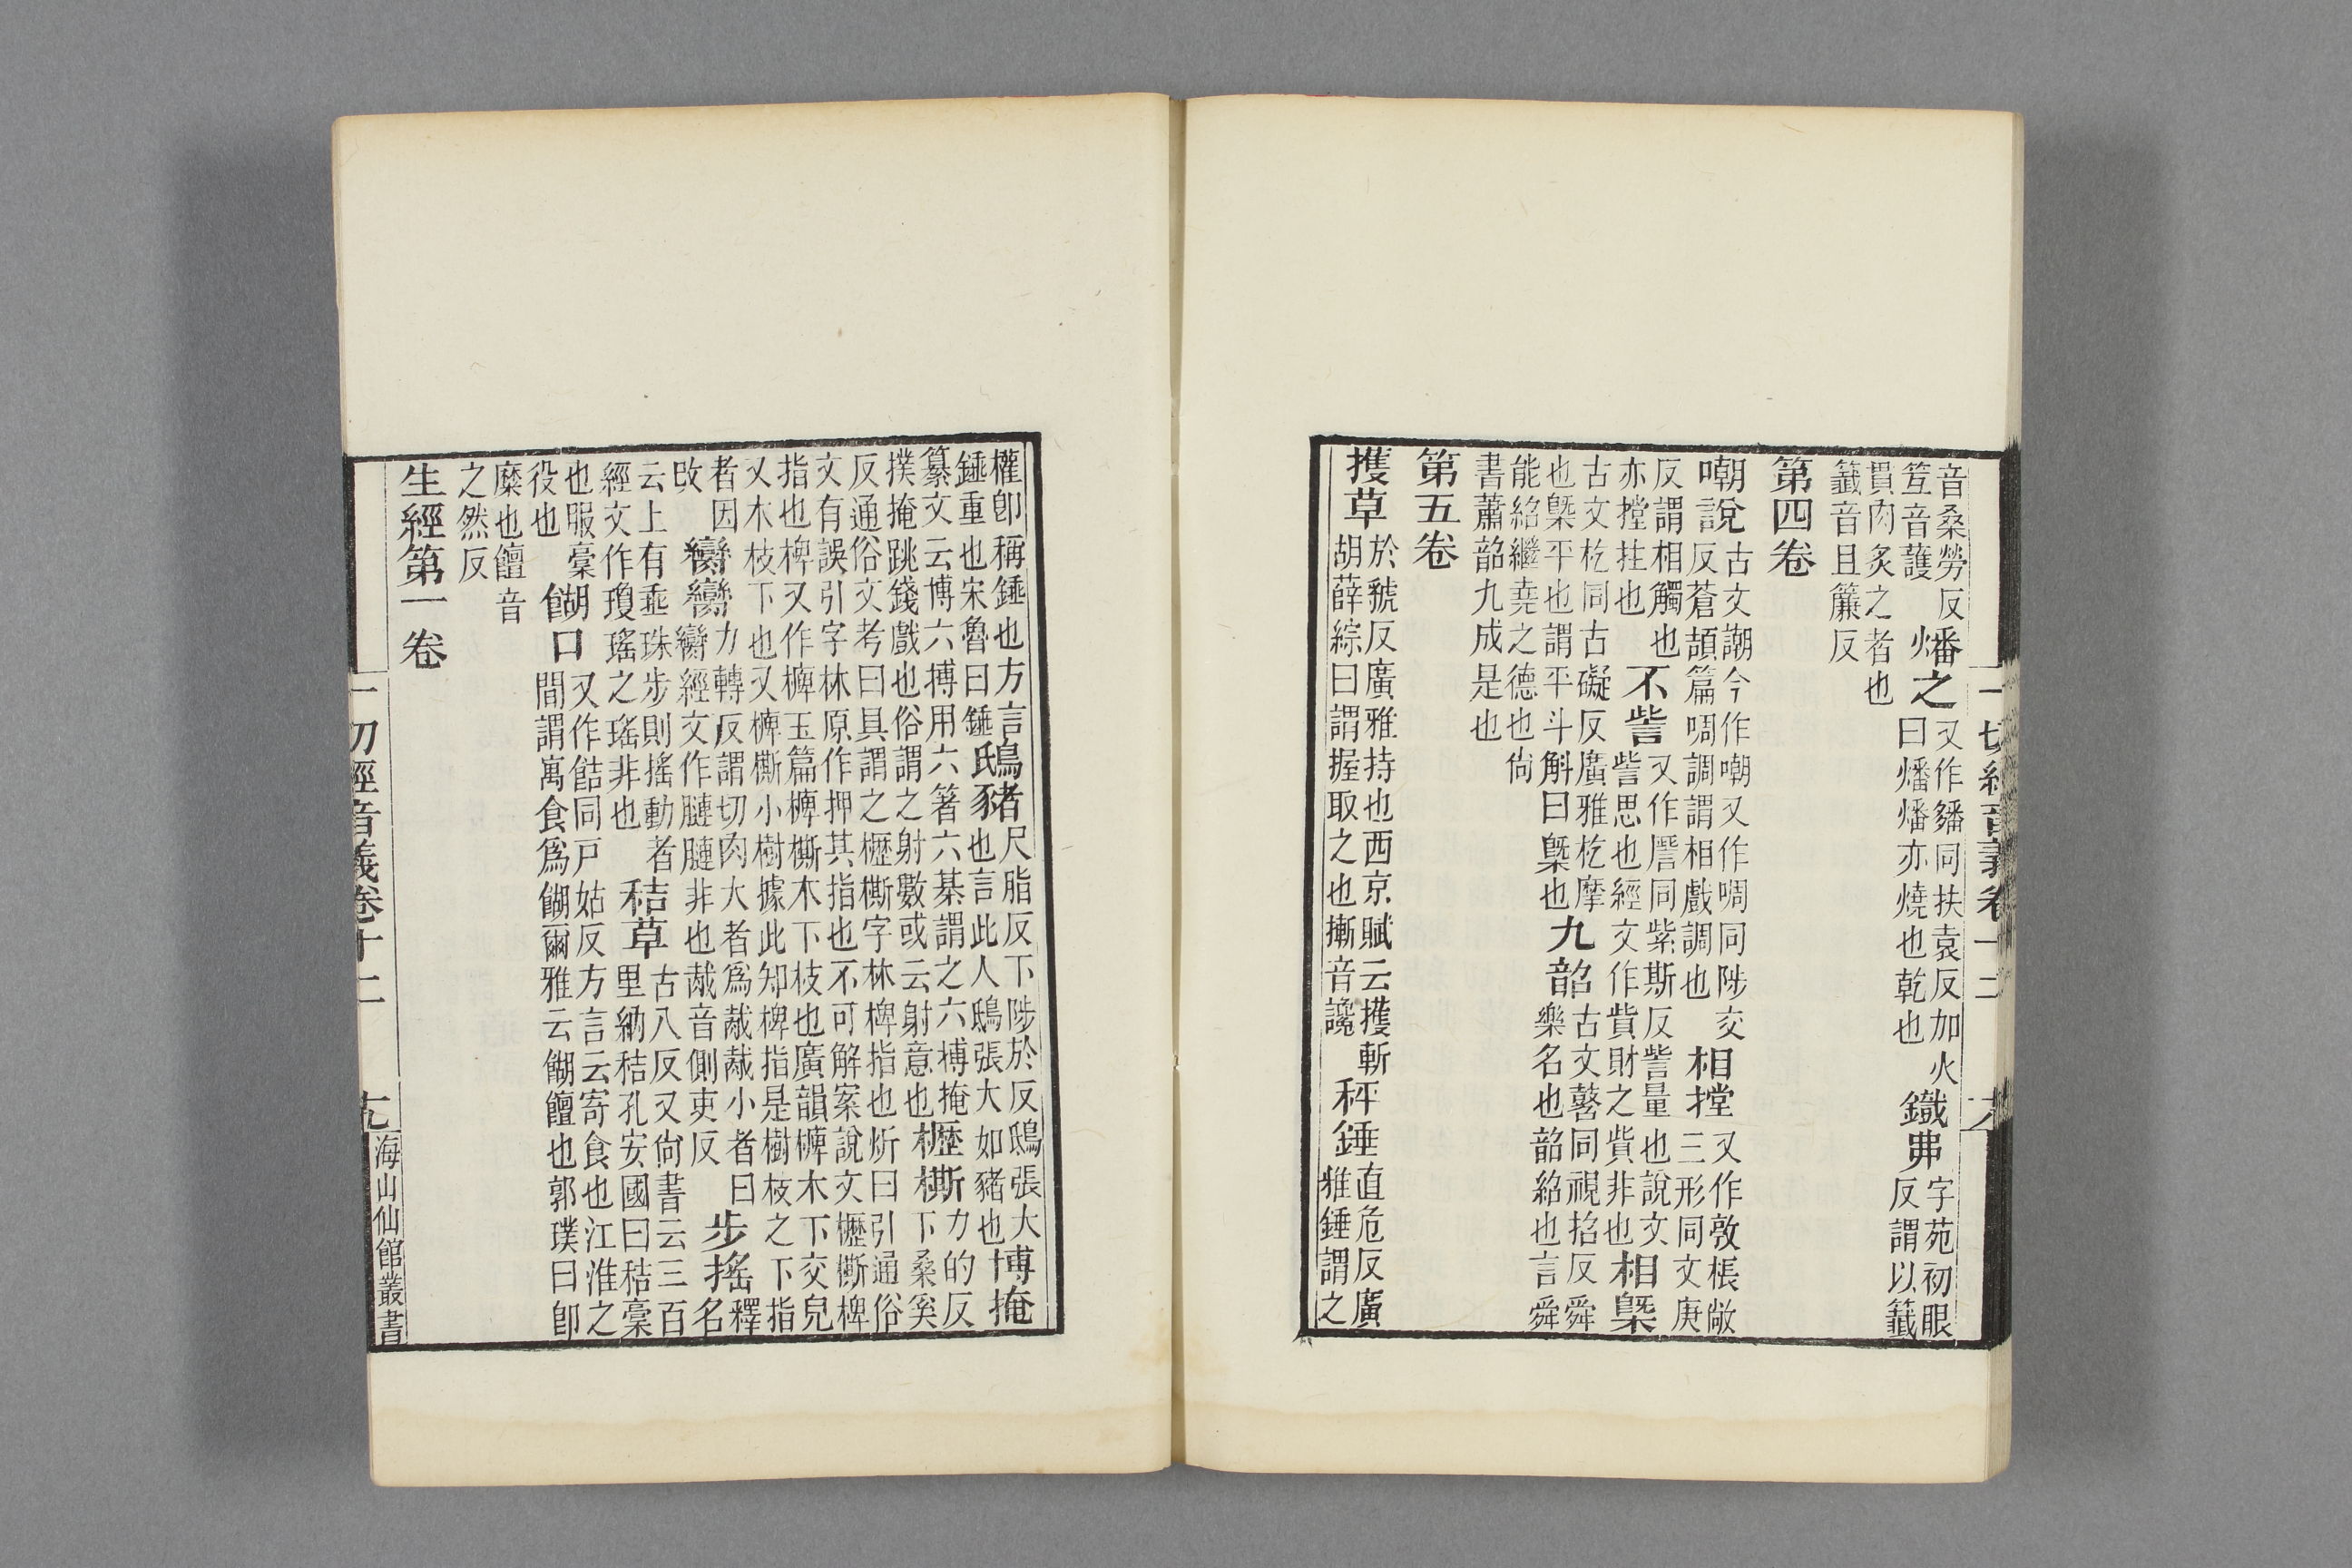 一切經音義卷十二
音桑勞反笡音護 燔之 又作䊩同扶袁反加火曰燔燔亦燒也乾也 鐵弗 字苑初眼反謂以籤
貫肉炙之者也籤音且簾反
第四卷
嘲說 古文謿今作嘲又作啁同陟交反蒼頡篇啁調謂相戲調也 相摚 又作敦棖敞三形同文庚
反謂相觸也亦摚拄也 不訾 又作同紫斯反訾量也說文訾思也經文作貲財之貲非也 相槩
古文杚同古礙反廣雅杚摩也槩平也謂平斗斛曰槩也 九韶 古文同視招反舜樂名也韶紹也言舜
能紹繼堯之德也尙書蕭韶九成是也
第五卷
擭草 於虢反廣雅持也西京賦云擭斬胡薛綜曰謂握取之也摲音讒 秤錘 直危反廣雅錘謂之
權卽稱錘也方言錘重也宋魯曰錘 鴟豬 尺脂反下陟於反鴟張大也言此人鴟張大如豬也 博掩
纂文云博六搏用六箸六棊謂之六博掩撲掩跳錢戲也俗謂之射數或云射意也 櫪㯕 力的反下桑奚
反通俗文考曰具謂之櫪㯕字林椑指也炘曰引通俗文有誤引字林原作押其指也不可解案說文櫪㯕椑
指也椑又作㯅玉篇㯅㯕木下枝也廣韻㯅木下交皃又木枝下也又㯅㯕小樹據此知椑指是樹枝之下指
者因攺 臠臠 力轉反謂切肉大者爲胾胾小者曰臠經文作䏈䏈非也胾音側吏反 步搖 釋名
云上有垂珠步則搖動者經文作瓊瑤之瑤非也 秸草 古八反又尙書云三百里納秸孔安國曰秸稾
也服稾役也 餬口 又作䬣同戸姑反方言云寄食也江淮之間謂寓食爲餬爾雅云餬饘也郭璞曰卽
糜也饘音之然反
生經第一卷
一切經音義卷十二 海山仙館叢書